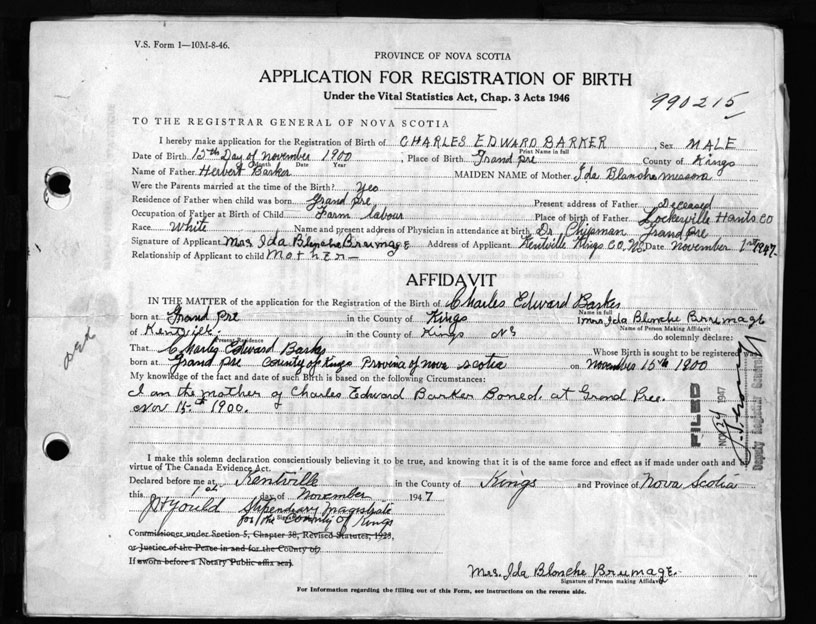 V.S. Form 1—10M-8-46.
PROVINCE OF NOVA SCOTIA
APPLICATION FOR REGISTRATION OF BIRTH
Under the Vital Statistics Act, Chap. 3 Acts 1946
990215
TO THE REGISTRAR GENERAL OF NOVA SCOTIA
I hereby make application for the Registration of Birth of CHARLES EDWARD BARKER, Sex MALE
Print Name in full
Date of Birth 15th Day of November 1900, Place of Birth Grand Pre County of Kings
Month Date Year
Name of Father Herbert Barker MAIDEN NAME of Mother Ida Blanche
Were the Parents married at the time of the Birth? Yes
Residence of Father when child was born Grand Pre Present address of Father Deceased
Occupation of Father at Birth of Child Farm labour Place of birth of Father Lockerville Hants CO
Race White Name and present address of Physician in attendance at birth Dr Chipman Grand Pre
Signature of Applicant Mrs Ida Blanche Brumage Address of Applicant Kentville Kings CO. NS Date November 1st 1947.
Relationship of Applicant to child Mother
AFFIDAVIT
IN THE MATTER of the application for the Registration of Birth of Charles Edward Barker
Name in full
born at Grand Pre in the County of Kings Mrs Ida Blanche Brumage
Name of Person Making Affidavit
of Kentville in the County of Kings NS do solemnly declare:
Present Residence
That Charles Edward Barker Whose Birth is sought to be registered was
born at Grand Pre County of Kings Provina of Nova Scotia on November 15th 1900
My knowledge of the fact and date of such Birth is based on the following Circumstances:
I am the mother of Charles Edward Barker Boned. at Grond Pree.
Nov 15th 1900.
FILED
NOV 24 1947
Deputy Registrar General
I make this solemn declaration conscientiously believing it to be true, and knowing that it is of the same force and effect as if made under oath and by
virtue of The Canada Evidence Act.
Declared before me at Kentville in the County of Kings and Province of Nova Scotia
this 1 st. day of November 1947
Gould Stipendiary Magistrate
for the County of Kings
Commissioner under Section 5, Chapter 38, Revised Statutes, 1923,
or Justice of the Peace in and for the County of
If sworn before a Notary Public affix seal.
Mrs. Ida Blanche Brumage.
Signature of Person making Affidavit
For Information regarding the filling out of this Form, see instructions on the reverse side.